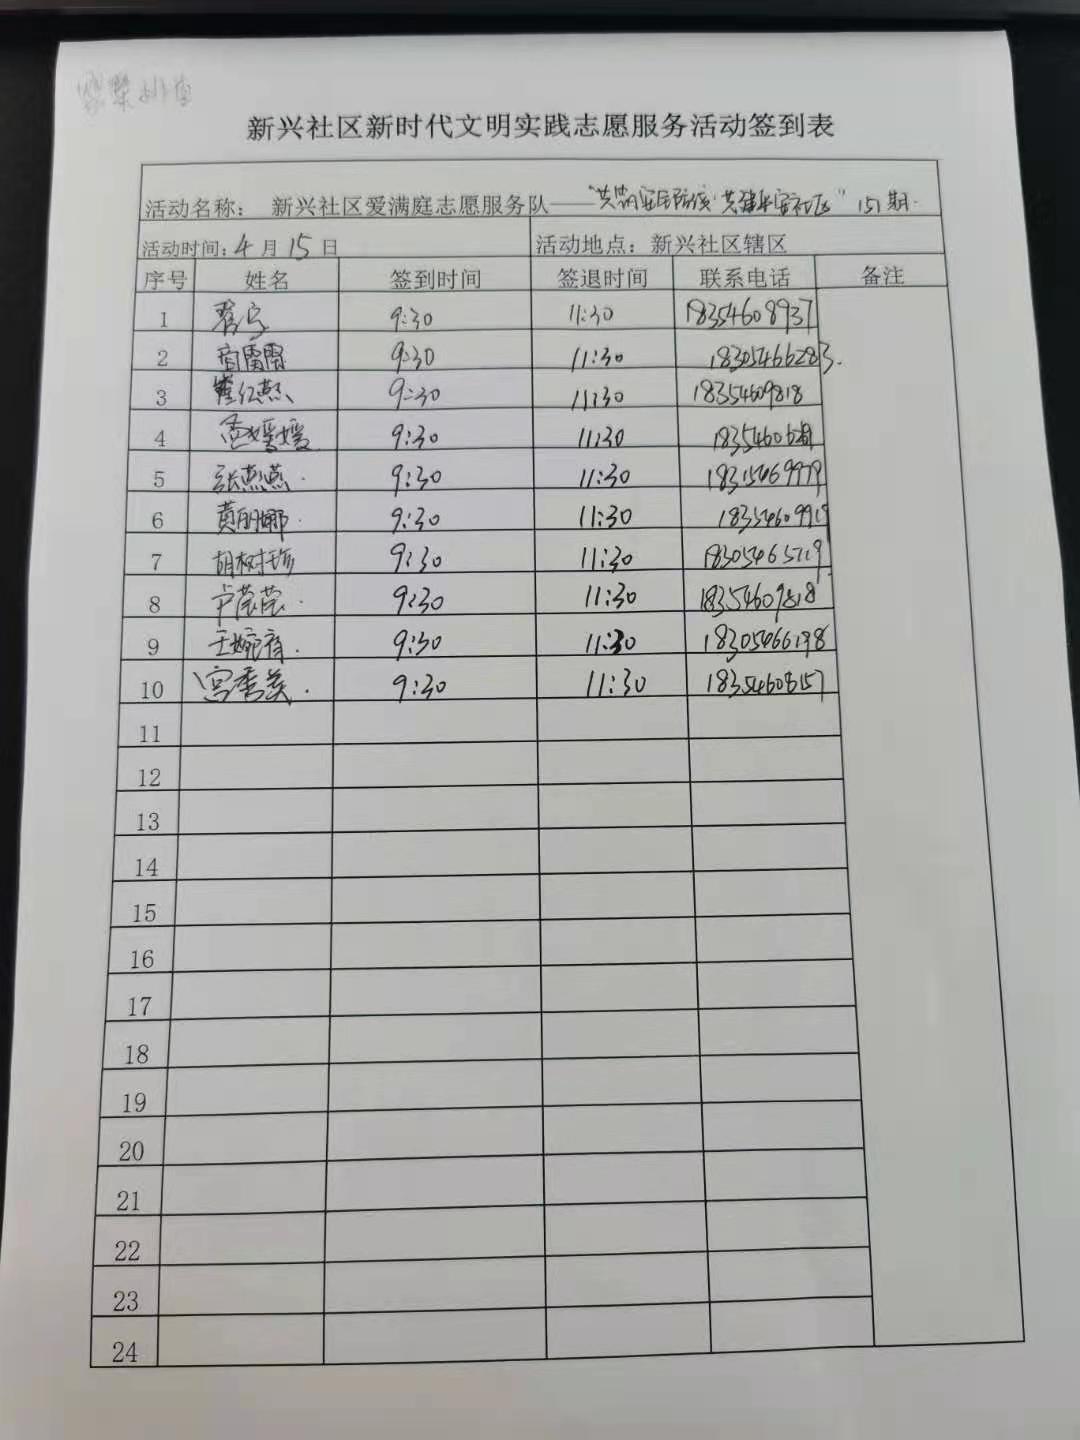 新兴社区新时代文明实践志愿服务活动签到表
活动名称： 新兴社区爱满庭志愿服务队——“共筑安全防线 共建平安社区” 151期.
活动时间: 4 月 15 日 活动地点：新兴社区辖区
序号 姓名 签到时间 签退时间 联系电话 备注
1 9:30 11:30 18354608937
2 9:30 11:30 18305466283.
3 崔红燕 9:30 11:30 18354609818
4 孟媛媛 9:30 11:30
5 张燕燕. 9:30 11:30 18315469979
6 黄丽娜. 9:30 11:30 18354609919
7 胡树珍 9:30 11:30 18305465719
8 卢莹莹. 9:30 11:30 18354609818
9 9:30 11:30 18305466198
10 宫秀美. 9:30 11:30 18354608157
11
12
13
14
15
16
17
18
19
20
21
22
23
24